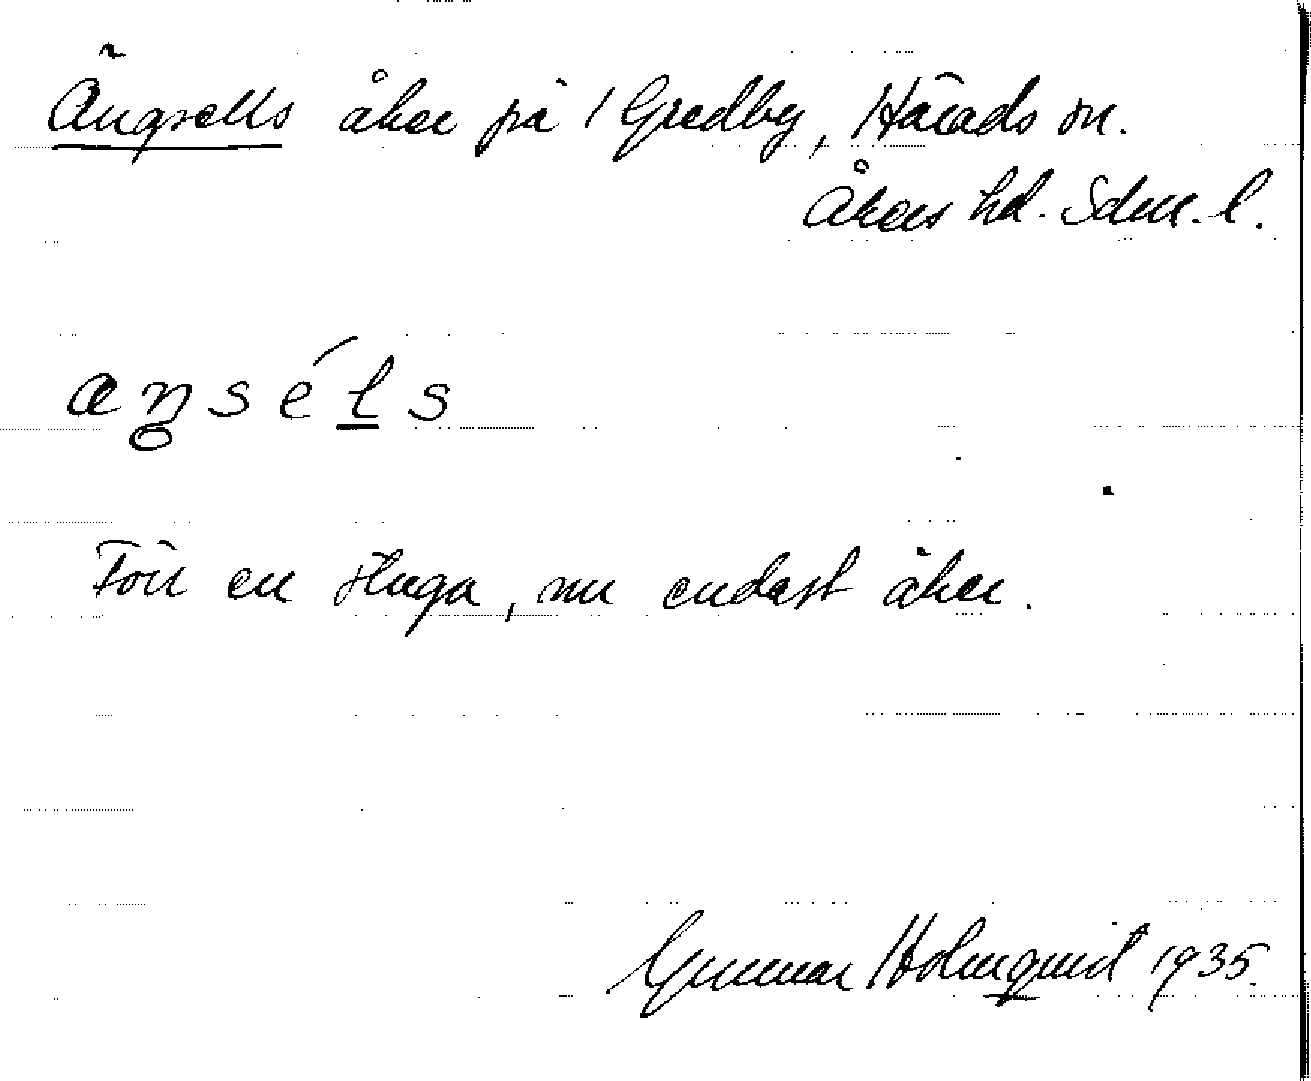 Ängsells åker på 1 Gredby, Härads sn.
Åkers hd. Sdm. l.
æŋsé̱ls
Förr en stuga, nu endast åker.
Gunnar Holmquist 1935.